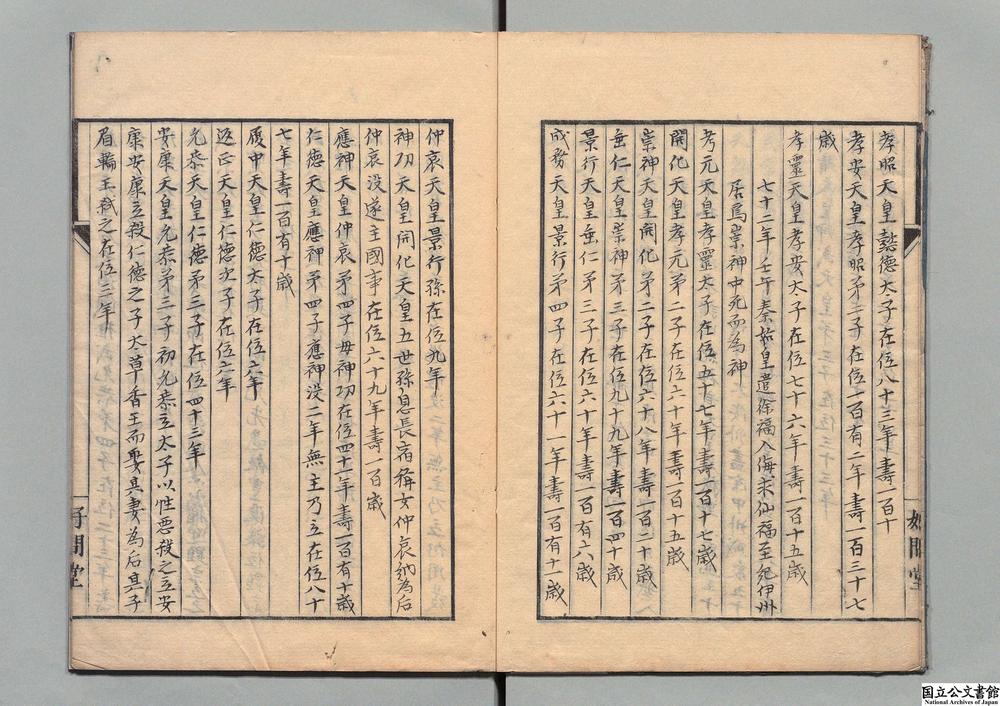 孝昭天皇懿德太子在位八十三年壽一百十
孝安天皇孝昭苐二子在位一百有二年壽一百三十七
歲
孝靈天皇孝安太子在位七十六年壽一百十五歲
七十二年壬午秦始皇遣徐福入海求仙福至紀伊州
居焉崇神中死而為神
考元天皇孝靈太子在位五十七年壽一百十七歲
開化天皇孝元苐二子在位六十年壽一百十五歲
崇神天皇開化苐二子在位六十八年壽一百二十歲
垂仁天皇崇神苐三子在位九十九年壽一百四十歲
景行天皇垂仁苐三子在位六十年壽一百有六歲
成務天皇景行苐四子在位六十一年壽一百有十一歲
仲哀天皇景行孫在位九年
神功天皇開化天皇五世孫息長宿祢女仲哀納為后
仲哀没遂主國事在位六十九年壽一百歲
應神天皇仲哀苐四子母神功在位四十一年壽一百有十歲
仁德天皇應神苐四子應神没二年無主乃立在位八十
七年壽一百有十歲
履中天皇仁德太子在位六年
返正天皇仁德次子在位六年
允恭天皇仁德苐三子在位四十三年
安康天皇允恭苐三子初允恭立太子以性惡殺之立安
康安康立殺仁德之子大草香王而娶其妻為后其子
眉輪王弒之在位三年
好問堂
國立公文書館
National Archives of Japan